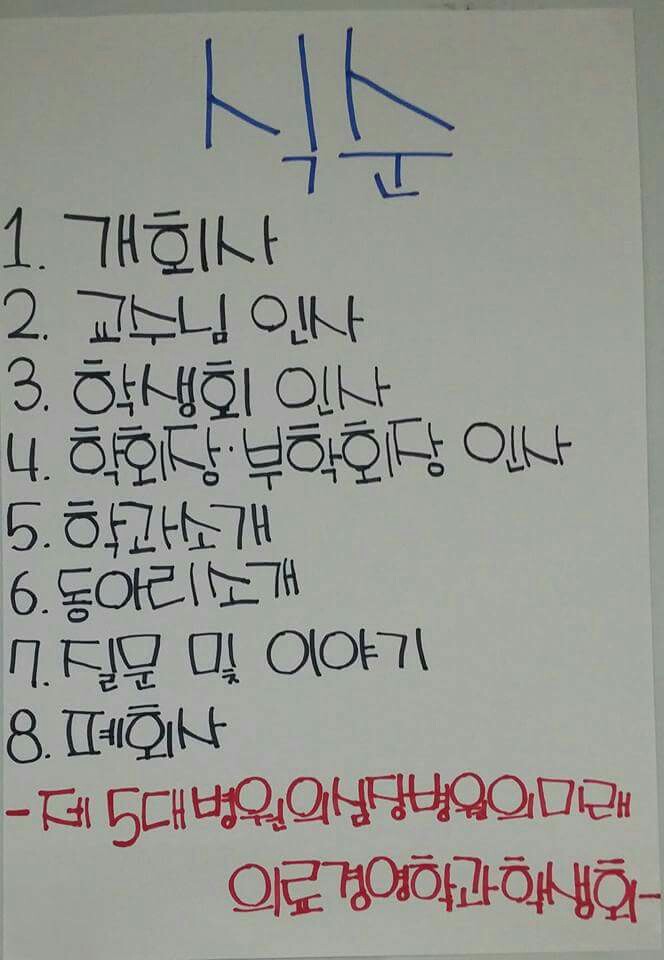 식순
1. 개회사
2. 교수님 인사
3. 학생회 인사
4. 학회장·부학회장 인사
5. 학과소개
6. 동아리소개
7. 질문 및 이야기
8.폐회사
- 제 5대병원의심장병원의미래
의료경영학과학생회-